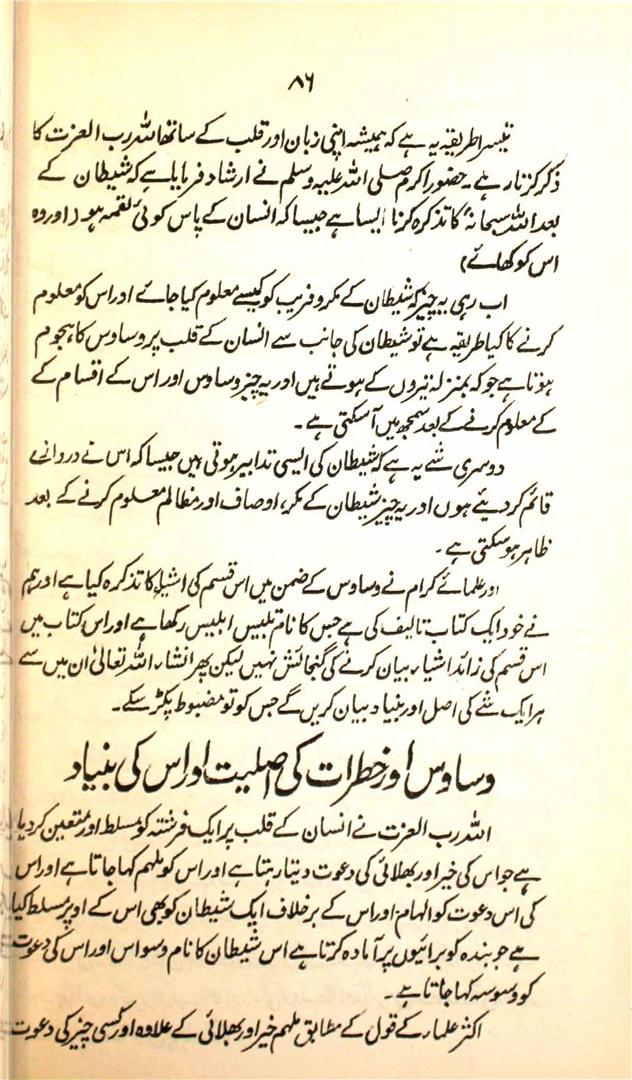 ۸۶
تیسرا طریقہ یہ ہے کہ ہمیشہ اپنی زبان اور قلب کے ساتھ اللہ رب العزت کا
ذکر کرنا رہے۔ حضور اکرم صلی اللہ علیہ وسلم نے ارشاد فرمایا ہے کہ شیطان کے
بعد اللہ سبحانہٗ کا تذکرہ کرنا ایسا ہے جیسا کہ انسان کے پاس کوئی لقمہ ہو (اور وہ
اس کو کھائے)
اب رہی یہ چیز کہ شیطان کے مکر و فریب کو کیسے معلوم کیا جائے اور اس کو معلوم
کرنے کا کیا طریقہ ہے تو شیطان کی جانب سے انسان کے قلب پر وساوس کا ہجوم
ہوتا ہے جو کہ بمنزلہ تیروں کے ہوتے ہیں اور یہ چیز وساوس اور اس کے اقسام کے
کے معلوم کرنے کے بعد سمجھ میں آ سکتی ہے۔
دوسری شے یہ ہے کہ شیطان کی ایسی تدابیر ہوتی ہیں جیسا کہ اس نے دروازے
قائم کر دیئے ہوں اور یہ چیز شیطان کے مکر، اوصاف اور مظالم معلوم کرنے کے بعد
ظاہر ہو سکتی ہے۔
اور علمائے کرام نے وساوس کے ضمن میں اس قسم کی اشیاء کا تذکرہ کیا ہے اور ہم
نے خود ایک کتاب تالیف کی ہے جس کا نام تلبیس ابلیس رکھا ہے اور اس کتاب میں
اس قسم کی زائد اشیاء بیان کرنے کی گنجائش نہیں لیکن پھر انشاء اللہ تعالیٰ ان میں سے
ہر ایک شے کی اصل اور بنیاد بیان کریں گے جس کو تو مضبوط پکڑ سکے۔
وساوس اور خطرات کی اصلیت اور اس کی بنیاد
اللہ رب العزت نے انسان کے قلب پر ایک فرشتہ کو مسلط اور متعین کر دیا
ہے جو اس کی خیر اور بھلائی کی دعوت دیتا رہتا ہے اور اس کو ملہم کہا جاتا ہے اور اس
کی اس دعوت کو الہام اور اس کے برخلاف ایک شیطان کو بھی اس کے اوپر مسلط کیا
ہے جو بندہ کو برائیوں پر آمادہ کرتا ہے اس شیطان کا نام وسواس اور اس کی دعوت
کو وسوسہ کہا جاتا ہے۔
اکثر علماء کے قول کے مطابق ملہم خیر اور بھلائی کے علاوہ اور کسی چیز کی دعوت